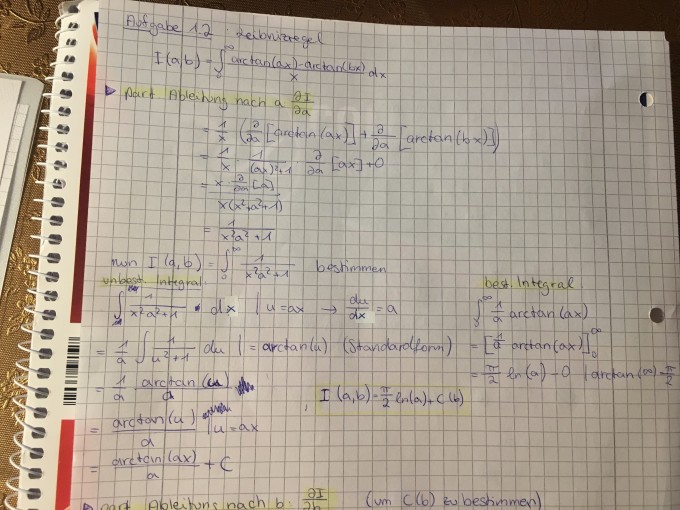 Aufgabe 1.2 : Leibnizregel
I(a,b) = ∫₀^∞ (arctan(ax) - arctan(bx))/x dx
▶ part. Ableitung nach a ∂I/∂a
= 1/x (∂/∂a [arctan(ax)] + ∂/∂a [arctan(bx)])
= 1/x · 1/((ax)²+1) ∂/∂a [ax] + 0
= (x · ∂/∂a [a])/(x(x²+a²+1))
= 1/(x²a²+1)
nun I(a,b) = ∫₀^∞ 1/(x²a²+1) bestimmen
unbest. Integral:
∫ 1/(x²a²+1) · dx | u=ax → du/dx = a
= 1/a ∫ 1/(u²+1) du | = arctan(u) (Standardform)
= 1/a arctan(u)
= arctan(u)/a | u=ax
= arctan(ax)/a + C
best. Integral
∫₀^∞ 1/a arctan(ax)
= [1/a arctan(ax)]₀^∞
= π/2 ln(a) - 0 | arctan(∞) = π/2
I(a,b) = π/2 ln(a) + C(b)
▶ part. Ableitung nach b: ∂I/∂b (um C(b) zu bestimmen)